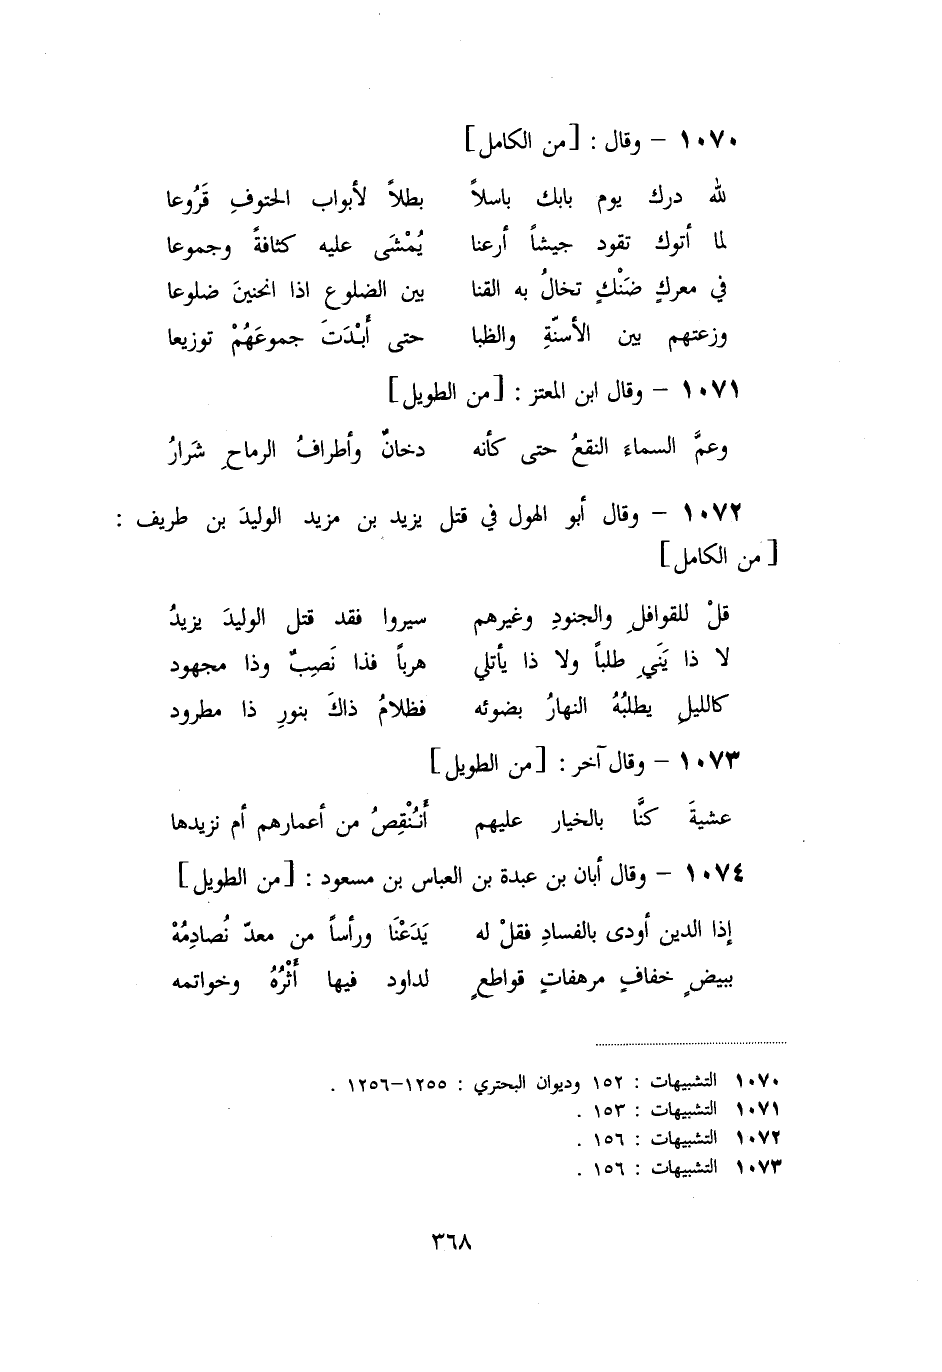 ١٠٧٠ – وقال : [من الكامل]
لله درك يوم بابك باسلاً بطلاً لأبواب الحتوفِ قَرُوعا
لما أتوك تقود جيشاً أرعنا يُمْشَى عليه كثافةً وجموعا
في معركٍ ضَنْكٍ تخالُ به القنا بين الضلوع اذا انحنينَ ضلوعا
وزعتهم بين الأسنّةِ والظبا حتى أَبْدَتَ جموعَهُمْ توزيعا
١٠٧١ – وقال ابن المعتز : [من الطويل]
وعمَّ السماءَ النقعُ حتى كأنه دخانٌ وأطرافُ الرماحِ شَرارُ
١٠٧٢ – وقال أبو الهول في قتل يزيد بن مزيد الوليدَ بن طريف :
[من الكامل]
قلْ للقوافلِ والجنودِ وغيرهم سيروا فقد قتل الوليدَ يزيدُ
لا ذا يَنَيِ طلباً ولا ذا يأتلي هرباً فذا نَصِبٌ وذا مجهود
كالليلِ يطلبُهُ النهارُ بضوئه فظلامُ ذاكَ بنورِ ذا مطرود
١٠٧٣ – وقال آخر : [من الطويل]
عشيةَ كنَّا بالخيار عليهم أَنُنْقِصُ من أعمارهم أم نزيدها
١٠٧٤ – وقال أبان بن عبدة بن العباس بن مسعود : [من الطويل]
إذا الدين أودى بالفسادِ فقلْ له يَدَعْنَا ورأساً من معدّ نُصادِمُهْ
ببيضٍ خفافٍ مرهفاتٍ قواطعٍ لداود فيها أَثْرُهُ وخواتمه
١٠٧٠ التشبيهات : ١٥٢ وديوان البحتري : ١٢٥٥–١٢٥٦ .
١٠٧١ التشبيهات : ١٥٣ .
١٠٧٢ التشبيهات : ١٥٦ .
١٠٧٣ التشبيهات : ١٥٦ .
٣٦٨